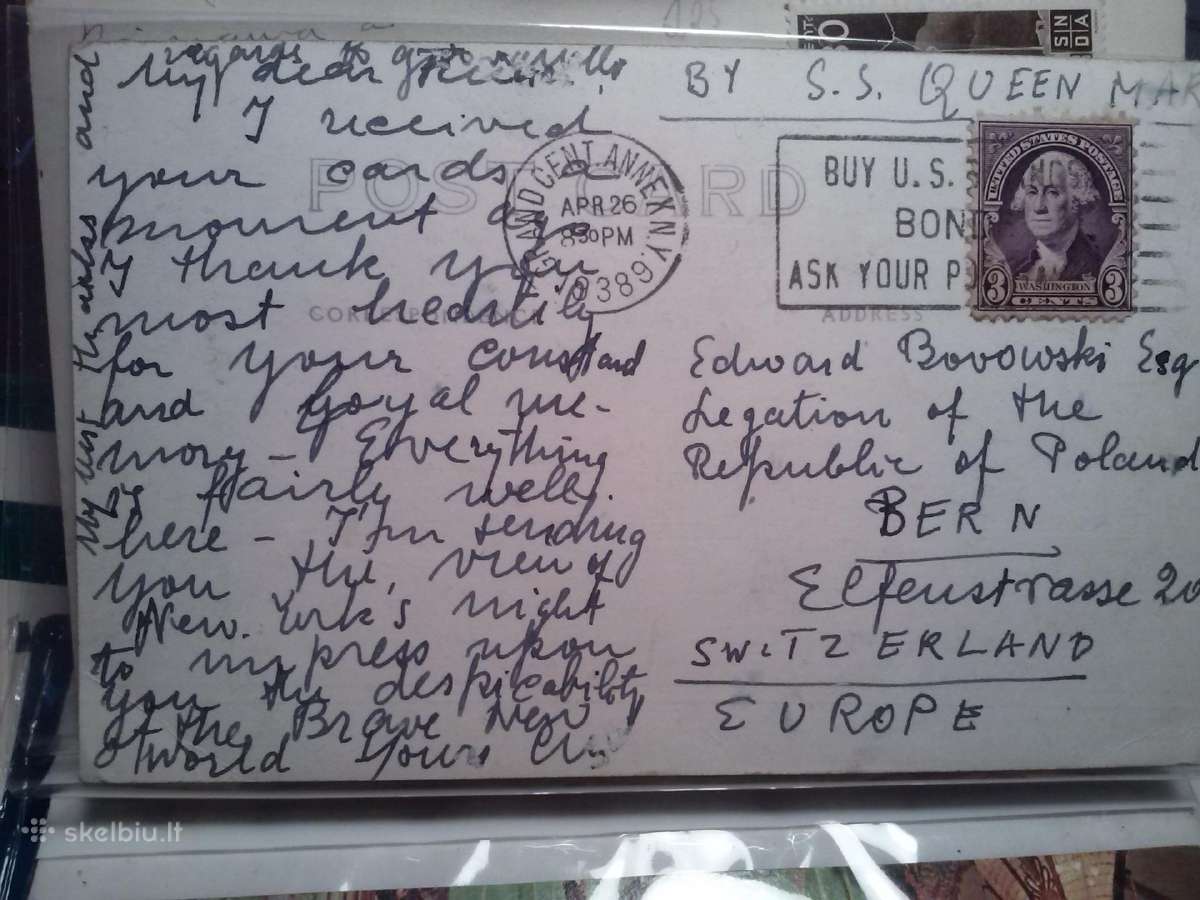 regards to
My dear
I received
your cards a
moment ago
I thank you
most heartily
for your constant
and loyal me-
mory - Everything
is fairly well
here - I'm sending
you the view of
New York's night
to impress upon
you the despicability
of the Brave New
World Yours
My best thanks and
BY S.S. QUEEN MAR
POST CARD
CORRESPONDENCE
ADDRESS
GRAND CENT. ANNEX N.Y.
APR 26
8 30 PM
1938
BUY U.S.
BON
ASK YOUR PO
UNITED STATES POSTAGE
3 WASHINGTON 3
CENTS
Edward Borowski Esq
Legation of the
Republic of Poland
BERN
Elfenstrasse 20
SWITZERLAND
EUROPE
skelbiu.lt